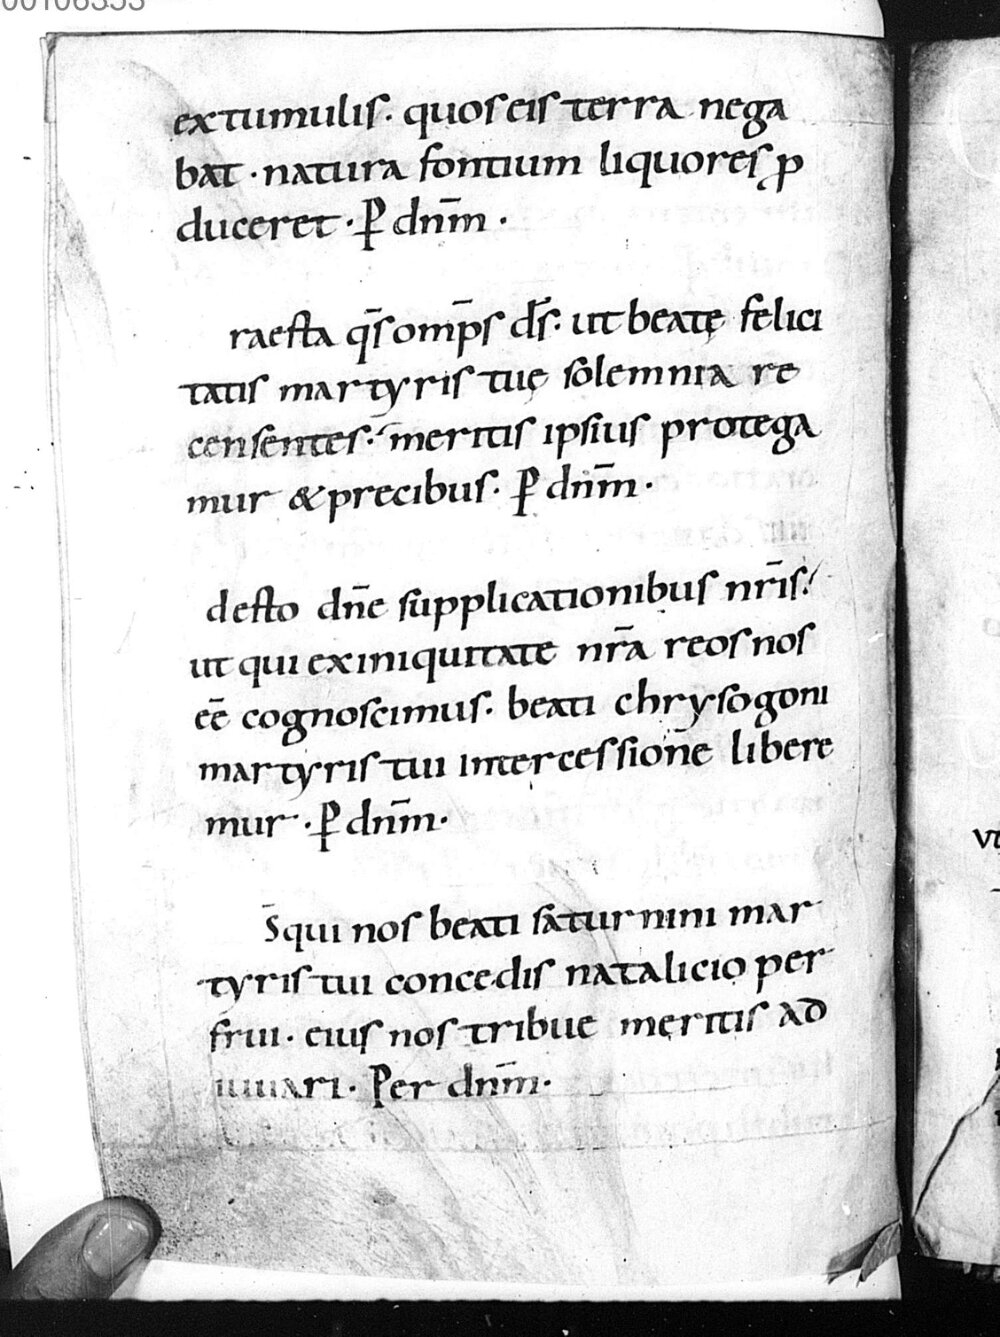 00106353
extumulis. quos eis terra nega
bat. natura fontium liquores p
duceret. P dnm̄.
raesta qs̄ omp̄s ds̄. ut beatę felici
tatis martyris tuę solemnia re
censentes. meritis ipsius protega
mur & precibus. P dnm̄.
desto dn̄e supplicationibus nr̄is.
ut qui ex iniquitate nr̄a reos nos
ēe cognoscimus. beati chrysogoni
martyris tui intercession̄e libere
mur. P dnm̄.
S̄ qui nos beati saturnini mar
tyris tui concedis natalicio per
frui. eius nos tribue meritis ad
iuuari. Per dnm̄.